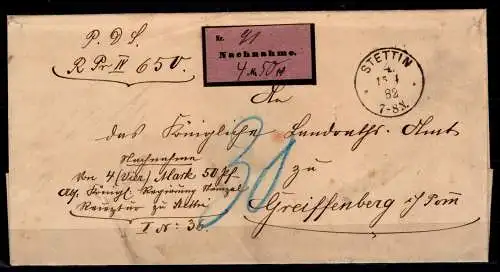 P. D. S.
R Pr IV 650.
Nr. 91
Nachnahme.
4 M 50 Pf
STETTIN
4
82
7-8N.
An
das Königliche Landraths-Amt
zu
Greiffenberg i/Pom
Nachnahme
von 4 (vier) Mark 50 Pf.
Kgl. Regierung
zu Stettin
I N: 36
30